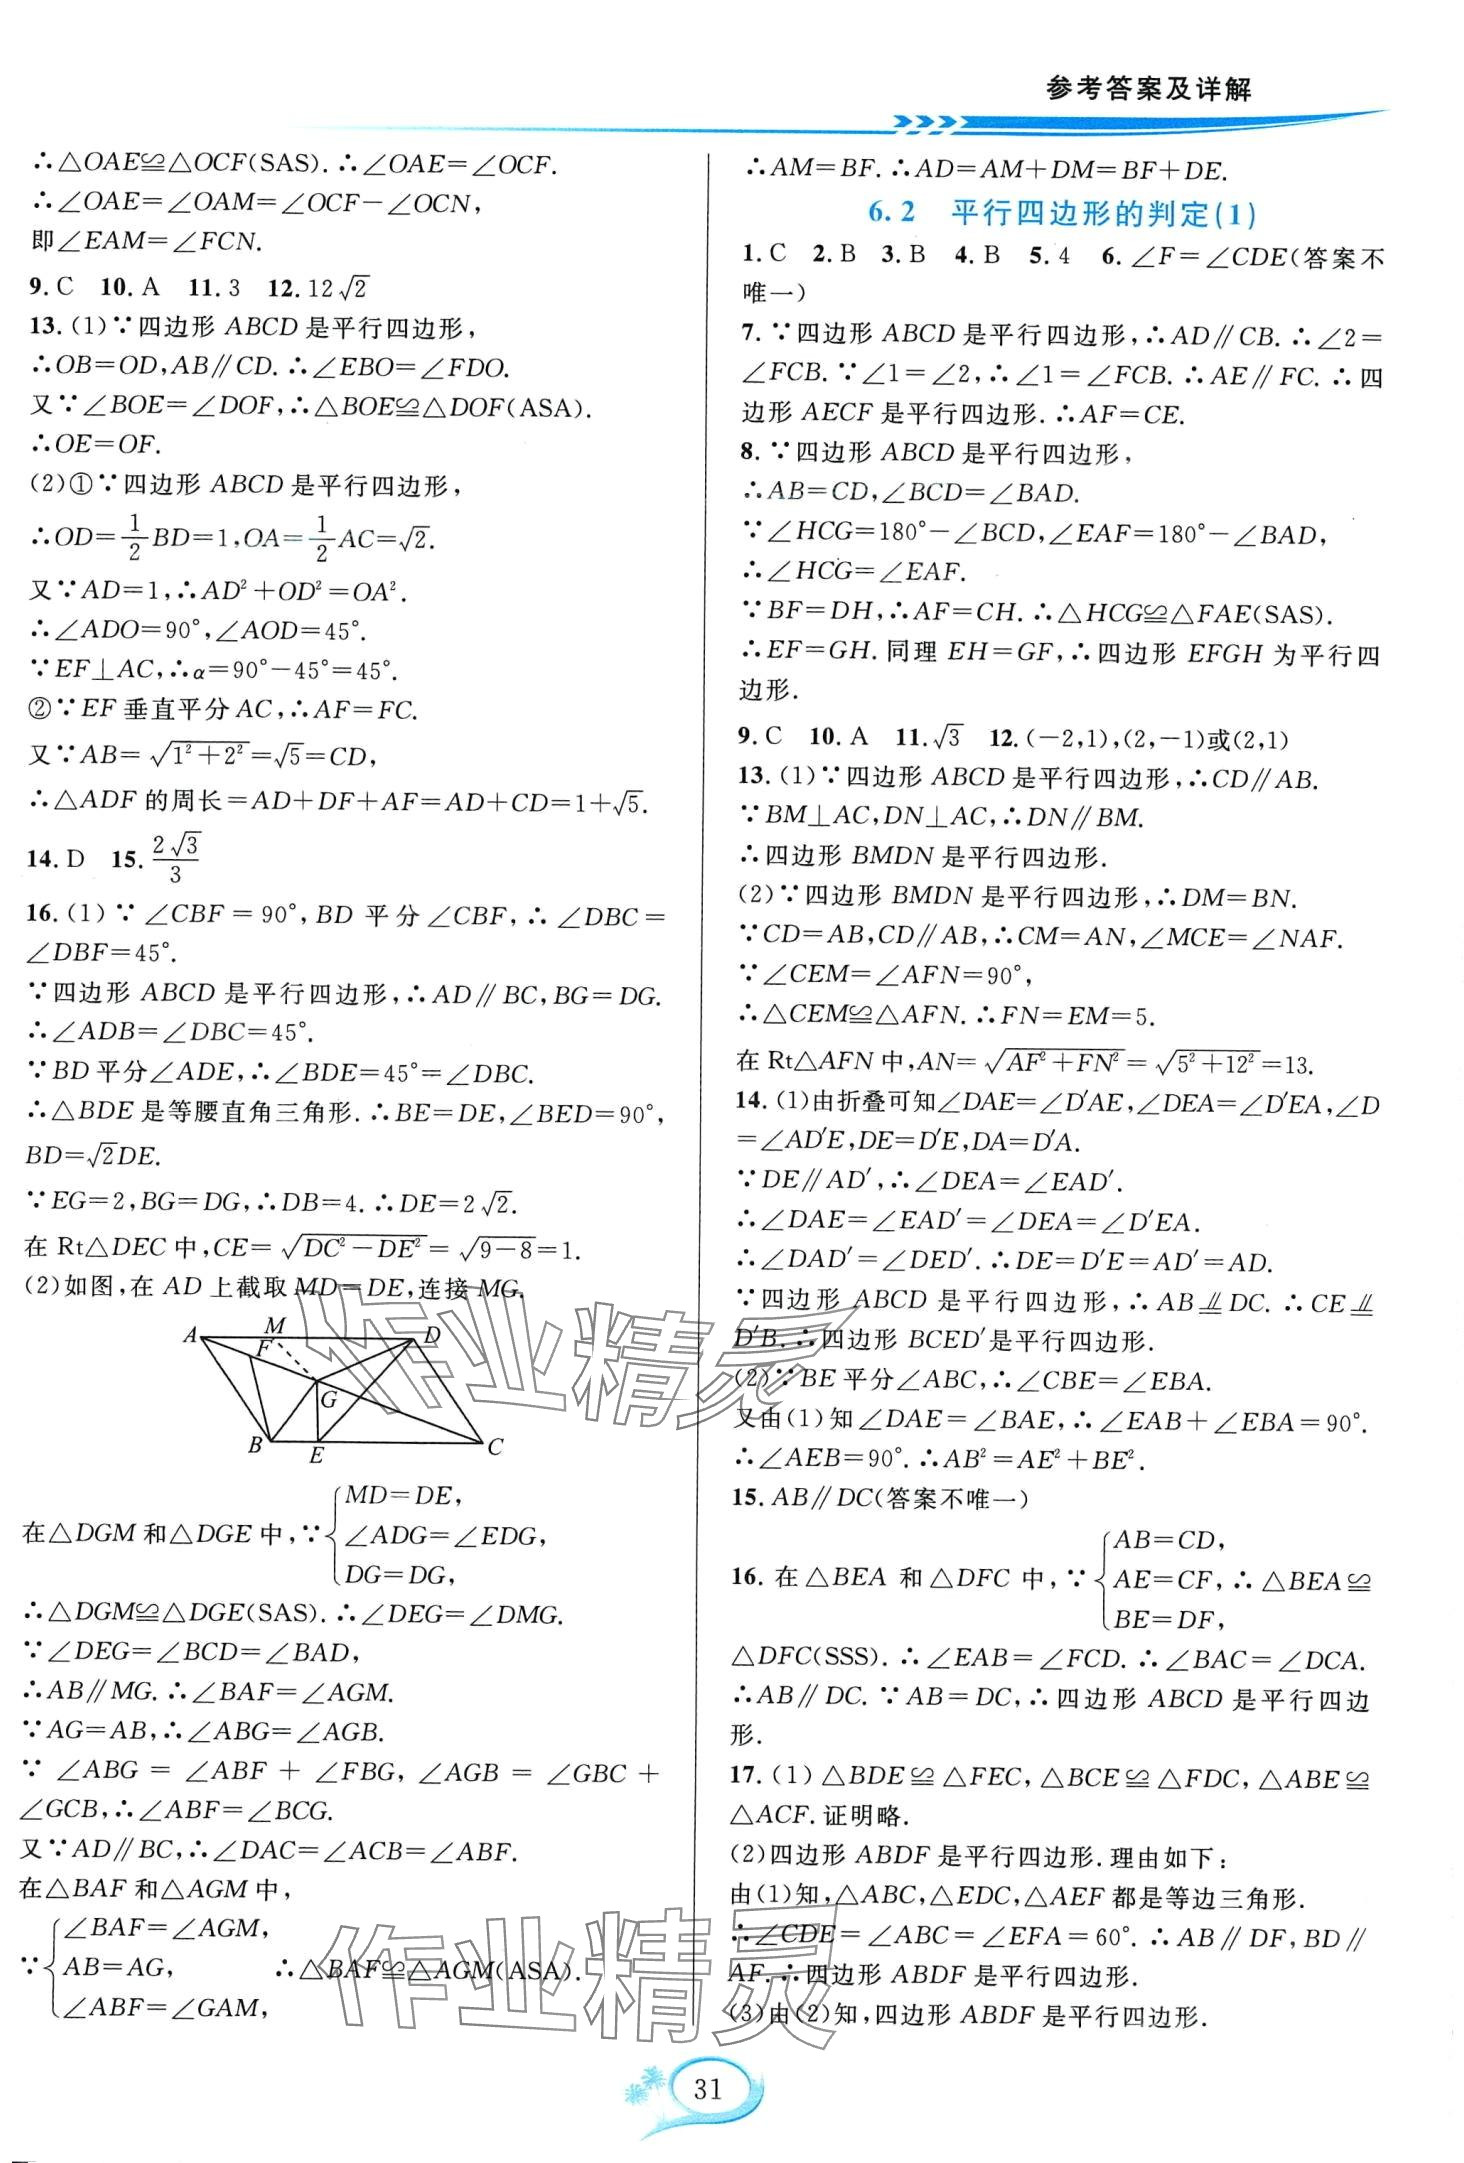 参考答案及详解
∴△OAE≌△OCF(SAS).∴∠OAE=∠OCF.
∴∠OAE=∠OAM=∠OCF-∠OCN,
即∠EAM=∠FCN.
9.C 10.A 11.3 12.12√2
13.(1)∵四边形 ABCD 是平行四边形,
∴OB=OD,AB∥CD.∴∠EBO=∠FDO.
又∵∠BOE=∠DOF,∴△BOE≌△DOF(ASA).
∴OE=OF.
(2)①∵四边形 ABCD 是平行四边形,
∴OD=1/2 BD=1,OA=1/2 AC=√2.
又∵AD=1,∴AD²+OD²=OA².
∴∠ADO=90°,∠AOD=45°.
∵EF⊥AC,∴α=90°-45°=45°.
②∵EF 垂直平分 AC,∴AF=FC.
又∵AB=√(1²+2²)=√5=CD,
∴△ADF 的周长=AD+DF+AF=AD+CD=1+√5.
14.D 15. 2√3/3
16.(1)∵∠CBF=90°,BD 平分∠CBF,∴∠DBC=
∠DBF=45°.
∵四边形 ABCD 是平行四边形,∴AD∥BC,BG=DG.
∴∠ADB=∠DBC=45°.
∵BD 平分∠ADE,∴∠BDE=45°=∠DBC.
∴△BDE 是等腰直角三角形.∴BE=DE,∠BED=90°,
BD=√2DE.
∵EG=2,BG=DG,∴DB=4.∴DE=2√2.
在 Rt△DEC 中,CE=√(DC²-DE²)=√(9-8)=1.
(2)如图,在 AD 上截取 MD=DE,连接 MG.
A M D
F
G
B E C
在△DGM 和△DGE 中,∵{MD=DE,
∠ADG=∠EDG,
DG=DG,
∴△DGM≌△DGE(SAS).∴∠DEG=∠DMG.
∵∠DEG=∠BCD=∠BAD,
∴AB∥MG.∴∠BAF=∠AGM.
∵AG=AB,∴∠ABG=∠AGB.
∵∠ABG=∠ABF+∠FBG,∠AGB=∠GBC+
∠GCB,∴∠ABF=∠BCG.
又∵AD∥BC,∴∠DAC=∠ACB=∠ABF.
在△BAF 和△AGM 中,
∵{∠BAF=∠AGM,
AB=AG,
∠ABF=∠GAM,
∴△BAF≌△AGM(ASA).
∴AM=BF.∴AD=AM+DM=BF+DE.
6.2 平行四边形的判定(1)
1.C 2.B 3.B 4.B 5.4 6.∠F=∠CDE(答案不
唯一)
7.∵四边形 ABCD 是平行四边形,∴AD∥CB.∴∠2=
∠FCB.∵∠1=∠2,∴∠1=∠FCB.∴AE∥FC.∴四
边形 AECF 是平行四边形.∴AF=CE.
8.∵四边形 ABCD 是平行四边形,
∴AB=CD,∠BCD=∠BAD.
∵∠HCG=180°-∠BCD,∠EAF=180°-∠BAD,
∴∠HCG=∠EAF.
∵BF=DH,∴AF=CH.∴△HCG≌△FAE(SAS).
∴EF=GH.同理 EH=GF,∴四边形 EFGH 为平行四
边形.
9.C 10.A 11.√3 12.(-2,1),(2,-1)或(2,1)
13.(1)∵四边形 ABCD 是平行四边形,∴CD∥AB.
∵BM⊥AC,DN⊥AC,∴DN∥BM.
∴四边形 BMDN 是平行四边形.
(2)∵四边形 BMDN 是平行四边形,∴DM=BN.
∵CD=AB,CD∥AB,∴CM=AN,∠MCE=∠NAF.
∵∠CEM=∠AFN=90°,
∴△CEM≌△AFN.∴FN=EM=5.
在 Rt△AFN 中,AN=√(AF²+FN²)=√(5²+12²)=13.
14.(1)由折叠可知∠DAE=∠D′AE,∠DEA=∠D′EA,∠D
=∠AD′E,DE=D′E,DA=D′A.
∵DE∥AD′,∴∠DEA=∠EAD′.
∴∠DAE=∠EAD′=∠DEA=∠D′EA.
∴∠DAD′=∠DED′.∴DE=D′E=AD′=AD.
∵四边形 ABCD 是平行四边形,∴AB⫽DC.∴CE⫽
D′B.∴四边形 BCED′是平行四边形.
(2)∵BE 平分∠ABC,∴∠CBE=∠EBA.
又由(1)知∠DAE=∠BAE,∴∠EAB+∠EBA=90°.
∴∠AEB=90°.∴AB²=AE²+BE².
15.AB∥DC(答案不唯一)
16.在△BEA 和△DFC 中,∵{AB=CD,
AE=CF,∴△BEA≌
BE=DF,
△DFC(SSS).∴∠EAB=∠FCD.∴∠BAC=∠DCA.
∴AB∥DC.∵AB=DC,∴四边形 ABCD 是平行四边
形.
17.(1)△BDE≌△FEC,△BCE≌△FDC,△ABE≌
△ACF.证明略.
(2)四边形 ABDF 是平行四边形.理由如下:
由(1)知,△ABC,△EDC,△AEF 都是等边三角形.
∴∠CDE=∠ABC=∠EFA=60°.∴AB∥DF,BD∥
AF.∴四边形 ABDF 是平行四边形.
(3)由(2)知,四边形 ABDF 是平行四边形.
作业精灵
作业精灵
31